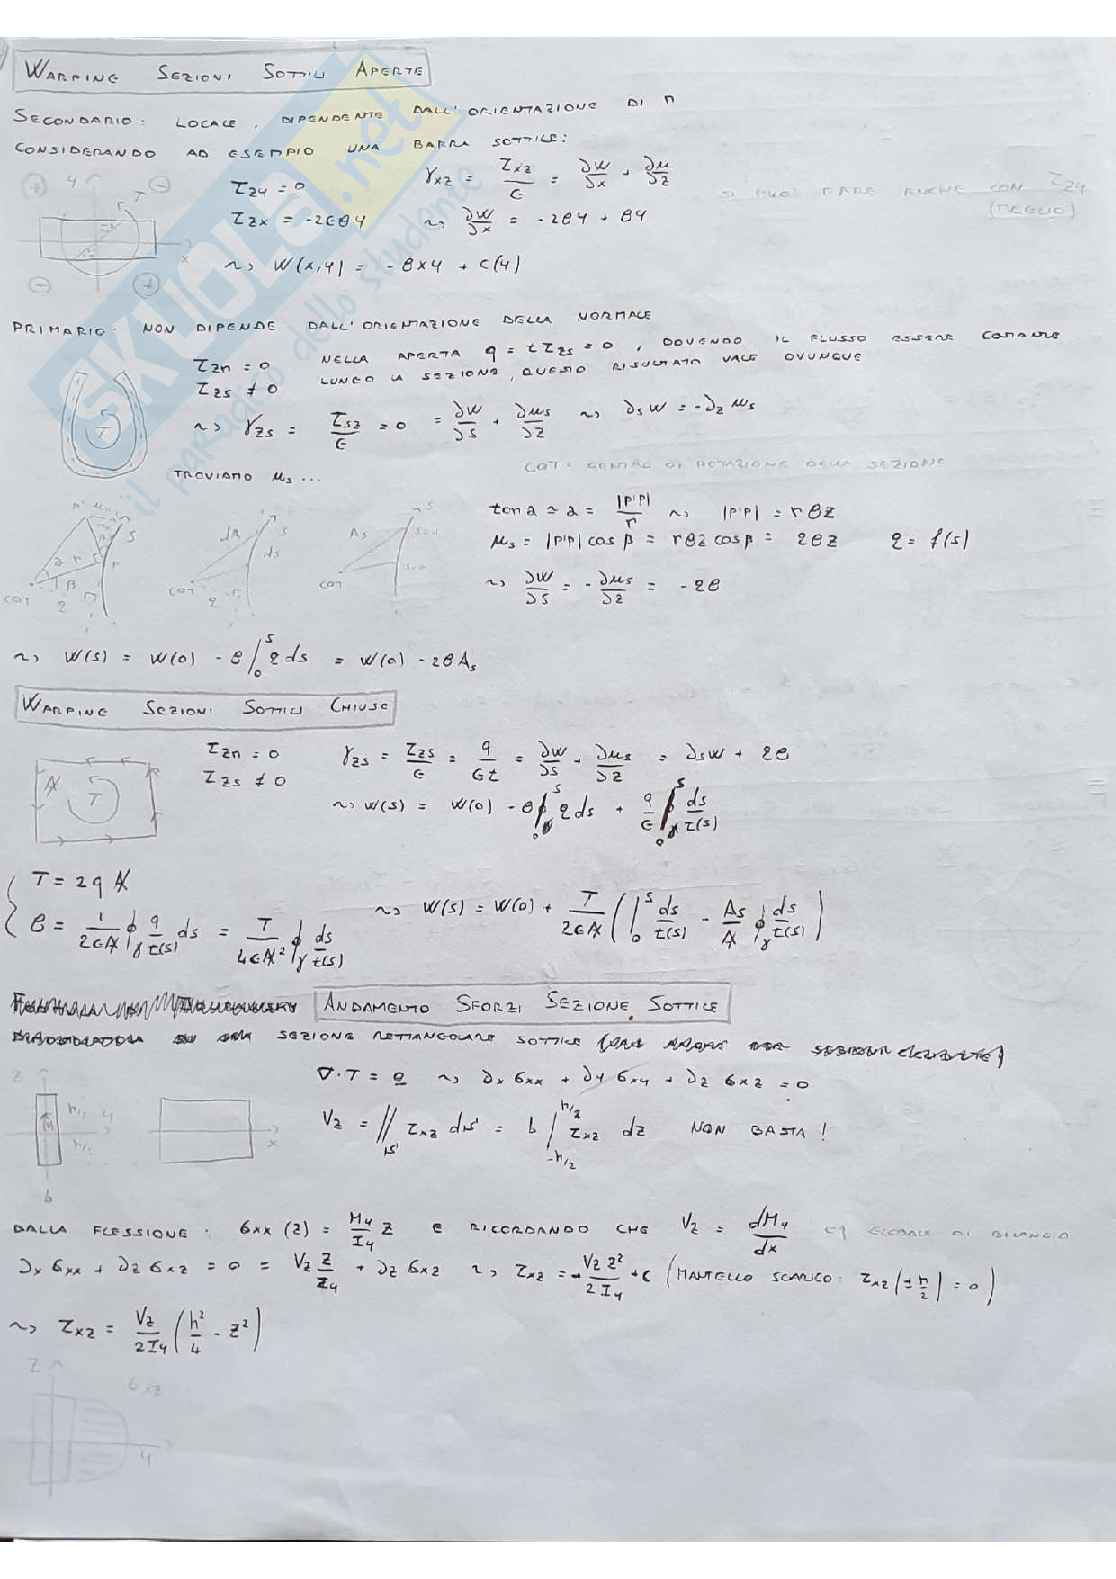 WARPING SEZIONI SOTTILI APERTE
SECONDARIO: LOCALE, DIPENDENTE DALL'ORIENTAZIONE DI n
CONSIDERANDO AD ESEMPIO UNA BARRA SOTTILE:
τzy = 0   γxz = τxz/G = ∂w/∂x + ∂u/∂z
SI PUO' FARE ANCHE CON τzy (MEGLIO)
τzx = -2Gθy ~> ∂w/∂x = -2θy + θy
~> w(x,y) = -θxy + c(y)
PRIMARIO: NON DIPENDE DALL'ORIENTAZIONE DELLA NORMALE
τzn = 0   NELLA APERTA q = tτzs = 0, DOVENDO IL FLUSSO ESSERE COSTANTE
τzs ≠ 0   LUNGO LA SEZIONE, QUESTO RISULTATO VALE OVUNQUE
~> γzs = τsz/G = 0 = ∂w/∂s + ∂us/∂z ~> ∂sw = -∂zus
T
TROVIAMO us ...
COT: CENTRO DI ROTAZIONE DELLA SEZIONE
tan α ≃ α = |P'P|/r ~> |P'P| = rθz
us = |P'P| cos β = rθz cos β = 2θz   2 = f(s)
~> ∂w/∂s = -∂us/∂z = -2θ
COT COT COT
~> w(s) = w(0) - θ∫₀ˢ 2 ds = w(0) - 2θAs
WARPING SEZIONI SOTTILI CHIUSE
τzn = 0   γzs = τzs/G = q/Gt = ∂w/∂s + ∂us/∂z = ∂sw + 2θ
τzs ≠ 0
T
~> w(s) = w(0) - θ∫₀ˢ 2 ds + q/G ∫₀ˢ ds/t(s)
T = 2qA
θ = 1/2GA ∮γ q/t(s) ds = T/4GA² ∮γ ds/t(s)
~> w(s) = w(0) + T/2GA (∫₀ˢ ds/t(s) - As/A ∮γ ds/t(s))
ANDAMENTO SFORZI SEZIONE SOTTILE
SEZIONE RETTANGOLARE SOTTILE
∇·T = 0 ~> ∂x σxx + ∂y σxy + ∂z σxz = 0
z h/2 y h/2 b x
Vz = ∬ τxz dS = b ∫₋h/2^h/2 τxz dz   NON BASTA!
DALLA FLESSIONE: σxx(z) = My/Iy z E RICORDANDO CHE Vz = dMy/dx EQ GLOBALE DI BILANCIO
∂x σxx + ∂z σxz = 0 = Vz z/Iy + ∂z σxz ~> τxz = -Vz z²/2Iy + C (MANTELLO SCARICO: τxz(±h/2) = 0)
~> τxz = Vz/2Iy (h²/4 - z²)
z σxz
y
SKUOLA.net
il paradiso dello studente